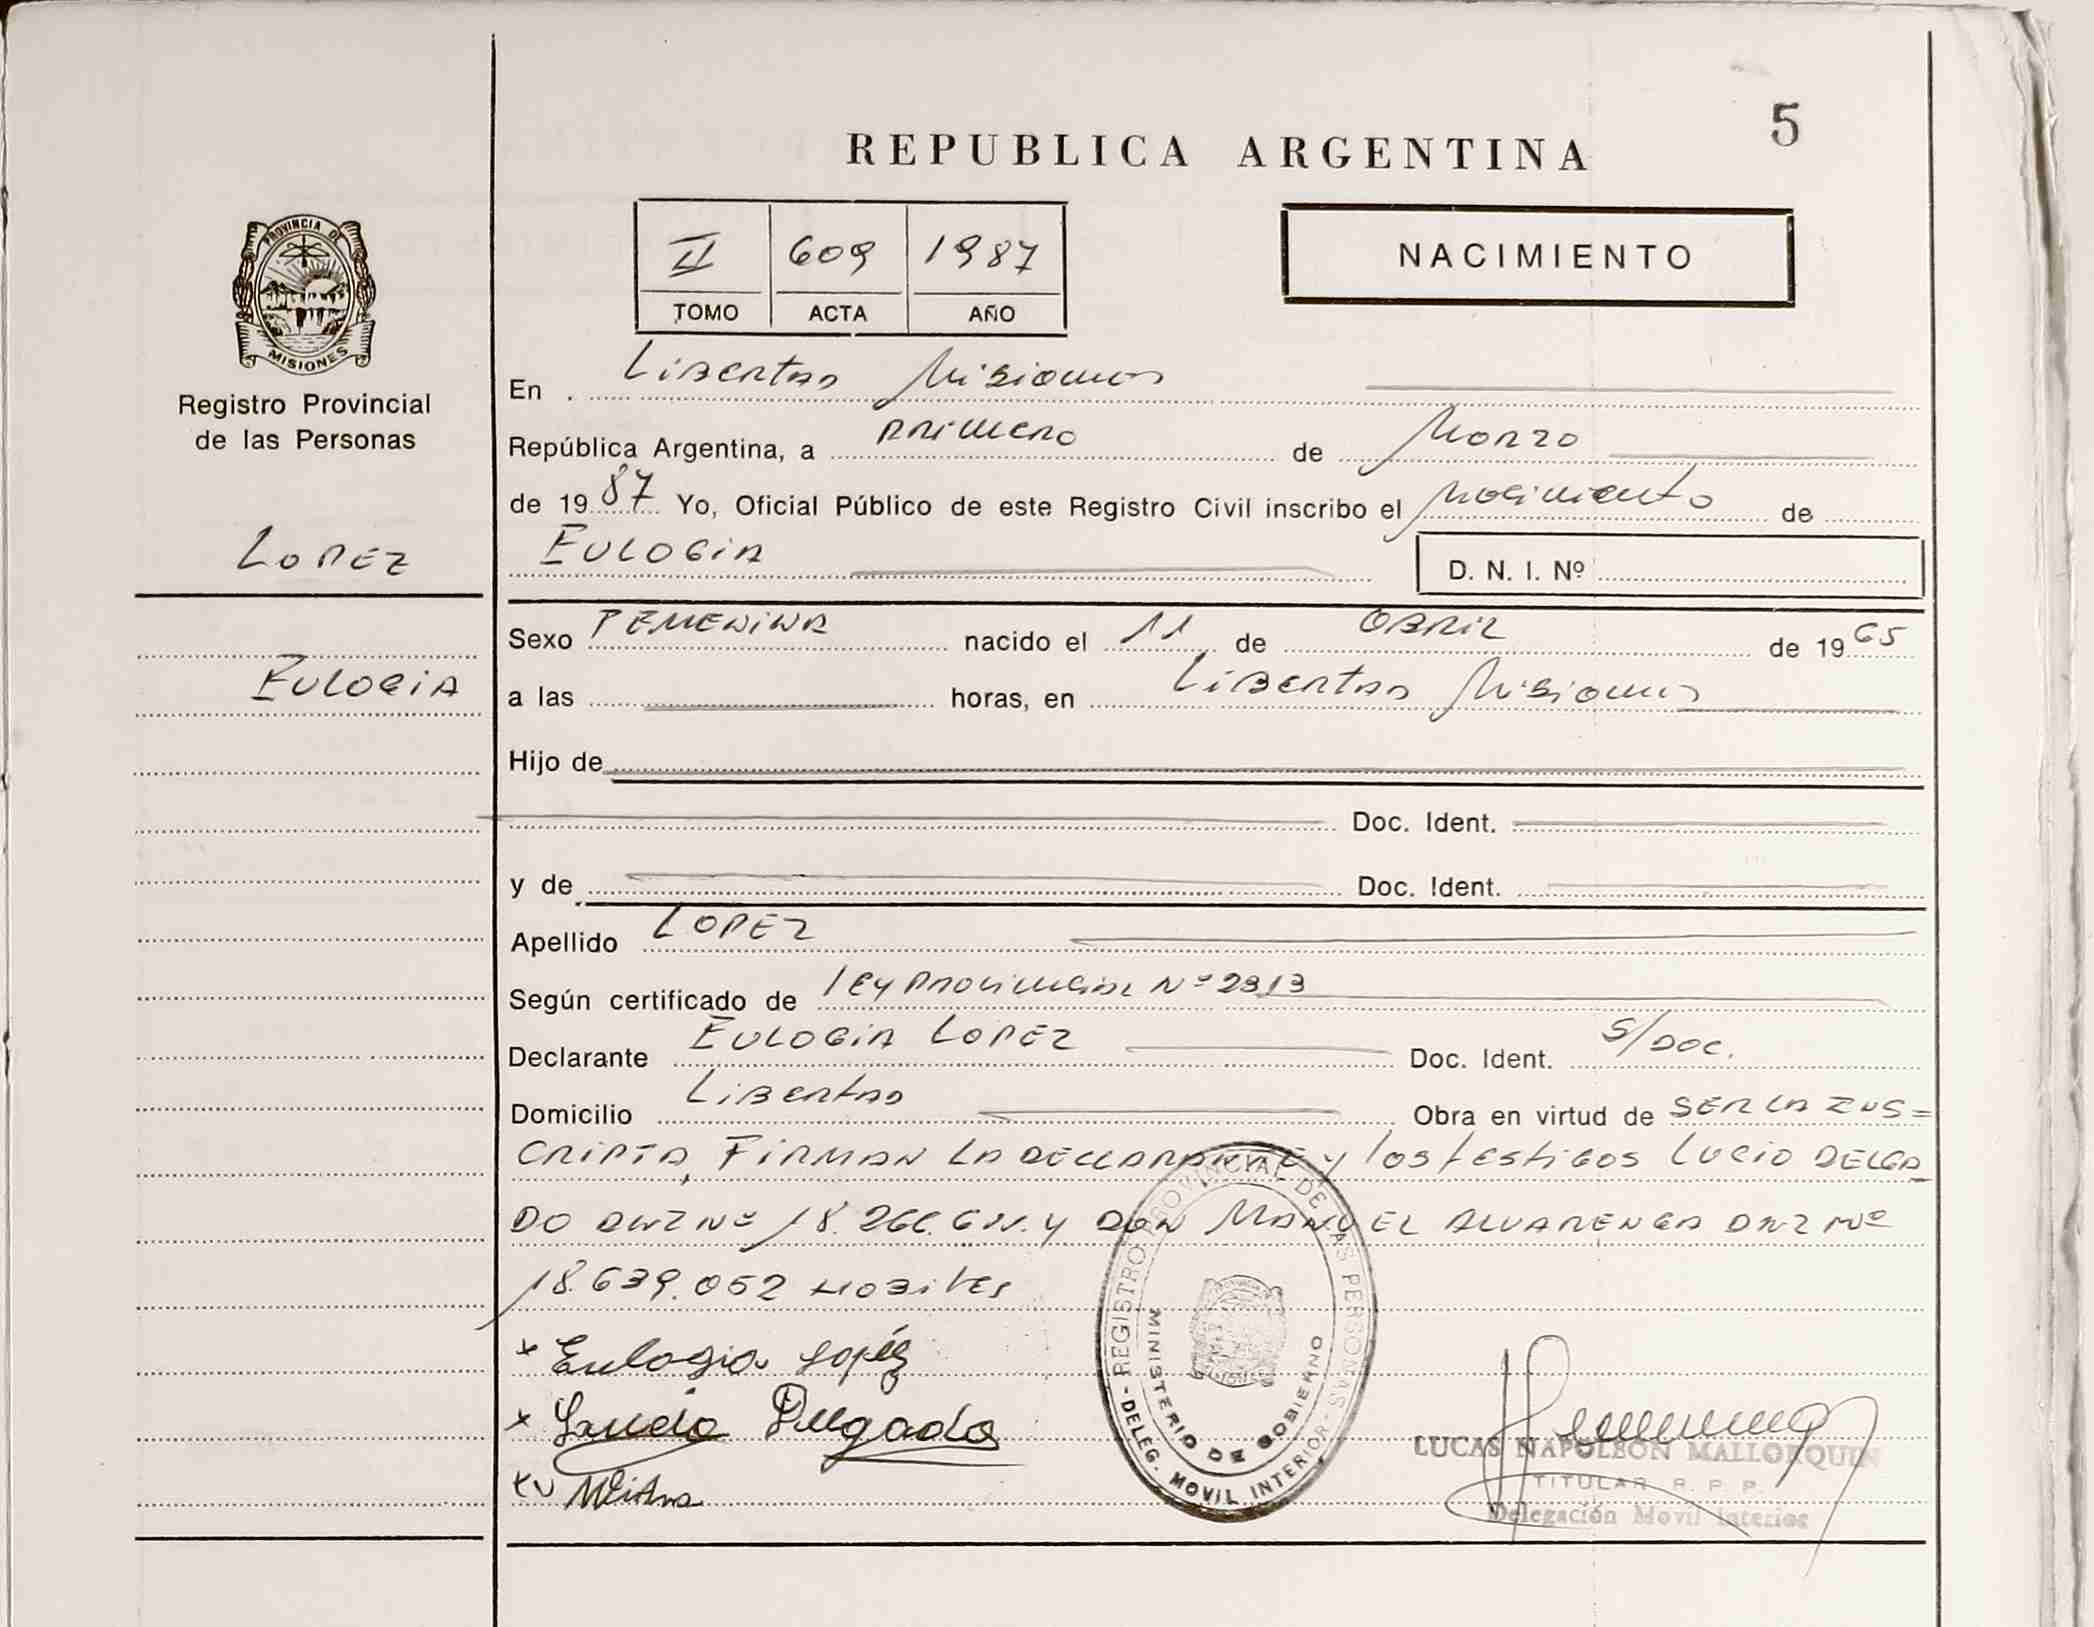 5
REPUBLICA ARGENTINA
II 609 1987
TOMO ACTA AÑO
NACIMIENTO
PROVINCIA DE
MISIONES
Registro Provincial
de las Personas
LOPEZ
EULOGIA
En Libertad Misiones
República Argentina, a primero de Marzo
de 1987 Yo, Oficial Público de este Registro Civil inscribo el Nacimiento de
EULOGIA D. N. I. Nº
Sexo FEMENINA nacido el 11 de ABRIL de 1965
a las horas, en Libertad Misiones
Hijo de
Doc. Ident.
y de Doc. Ident.
Apellido LOPEZ
Según certificado de ley Provincial Nº 2313
Declarante EULOGIA LOPEZ Doc. Ident. S/DOC.
Domicilio Libertad Obra en virtud de SER LA INS=
CRIPTA, FIRMAN LA DECLARANTE y los testigos LUCIO DELGA
DO DNI Nº y DON MANUEL ALVARENGA DNI Nº
18.639.052 Habiles
x Eulogia Lopéz
x Lucio Delgado
REGISTRO PROVINCIAL DE LAS PERSONAS
MINISTERIO DE GOBIERNO
DELEG. MOVIL INTERIOR
LUCAS NAPOLEON MALLORQUIN
TITULAR R. P. P.
Delegación Movil Interior